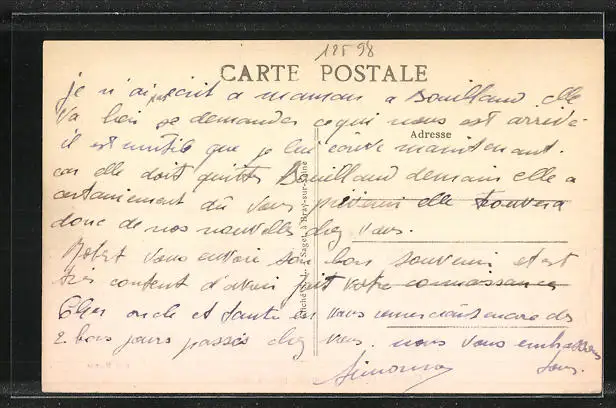 18598
CARTE POSTALE
Adresse
je n'ai pas écrit a maman a Bouilland elle
va bien se demander ce qui nous est arrivé
il est inutile que je lui écrive maintenant.
car elle doit quitter Bouilland demain elle a
certainement dû vous prévenir elle trouvera
donc de nos nouvelles chez vous.
vous envoie son bon souvenir et est
très content d'avoir fait votre connaissance
Cher oncle et tante en vous remerciant encore des
2 bons jours passés chez vous. nous vous embrassons
tous.
Simonne
Saget, à Bray-sur-Seine